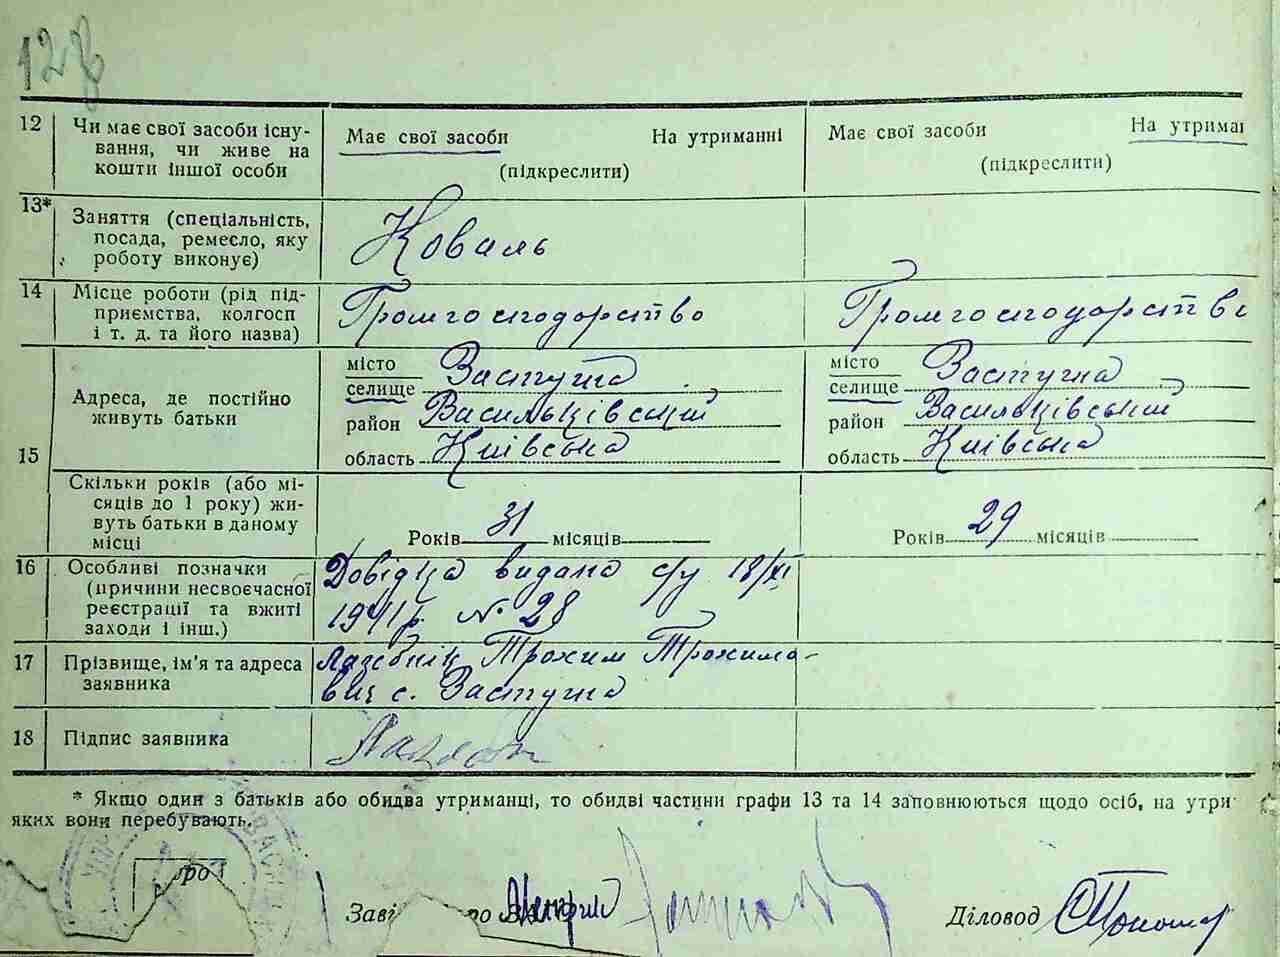 128
12 Чи має свої засоби існу-
вання, чи живе на
кошти іншої особи
Має свої засоби На утриманні
(підкреслити)
Має свої засоби На утримаі
(підкреслити)
13* Заняття (спеціальність,
посада, ремесло, яку
роботу виконує)
Коваль
14 Місце роботи (рід під-
приємства, колгосп
і т. д. та його назва)
Громгосподарство
Громгосподарство
15
Адреса, де постійно
живуть батьки
місто
селище Застугна
район Васильківський
область Київська
місто
селище Застугна
район Васильківський
область Київська
Скільки років (або мі-
сяців до 1 року) жи-
вуть батьки в даному
місці
Років 31 місяців
Років 29 місяців
16 Особливі позначки
(причини несвоєчасної
реєстрації та вжиті
заходи і інш.)
Довідка видана с/у 18/XI
1941 р. № 28
17 Прізвище, ім'я та адреса
заявника
Лазебнік Трохим Трохимо-
вич с. Застугна
18 Підпис заявника
* Якщо один з батьків або обидва утриманці, то обидві частини графи 13 та 14 заповнюються щодо осіб, на утри
яких вони перебувають.
Заві
Діловод